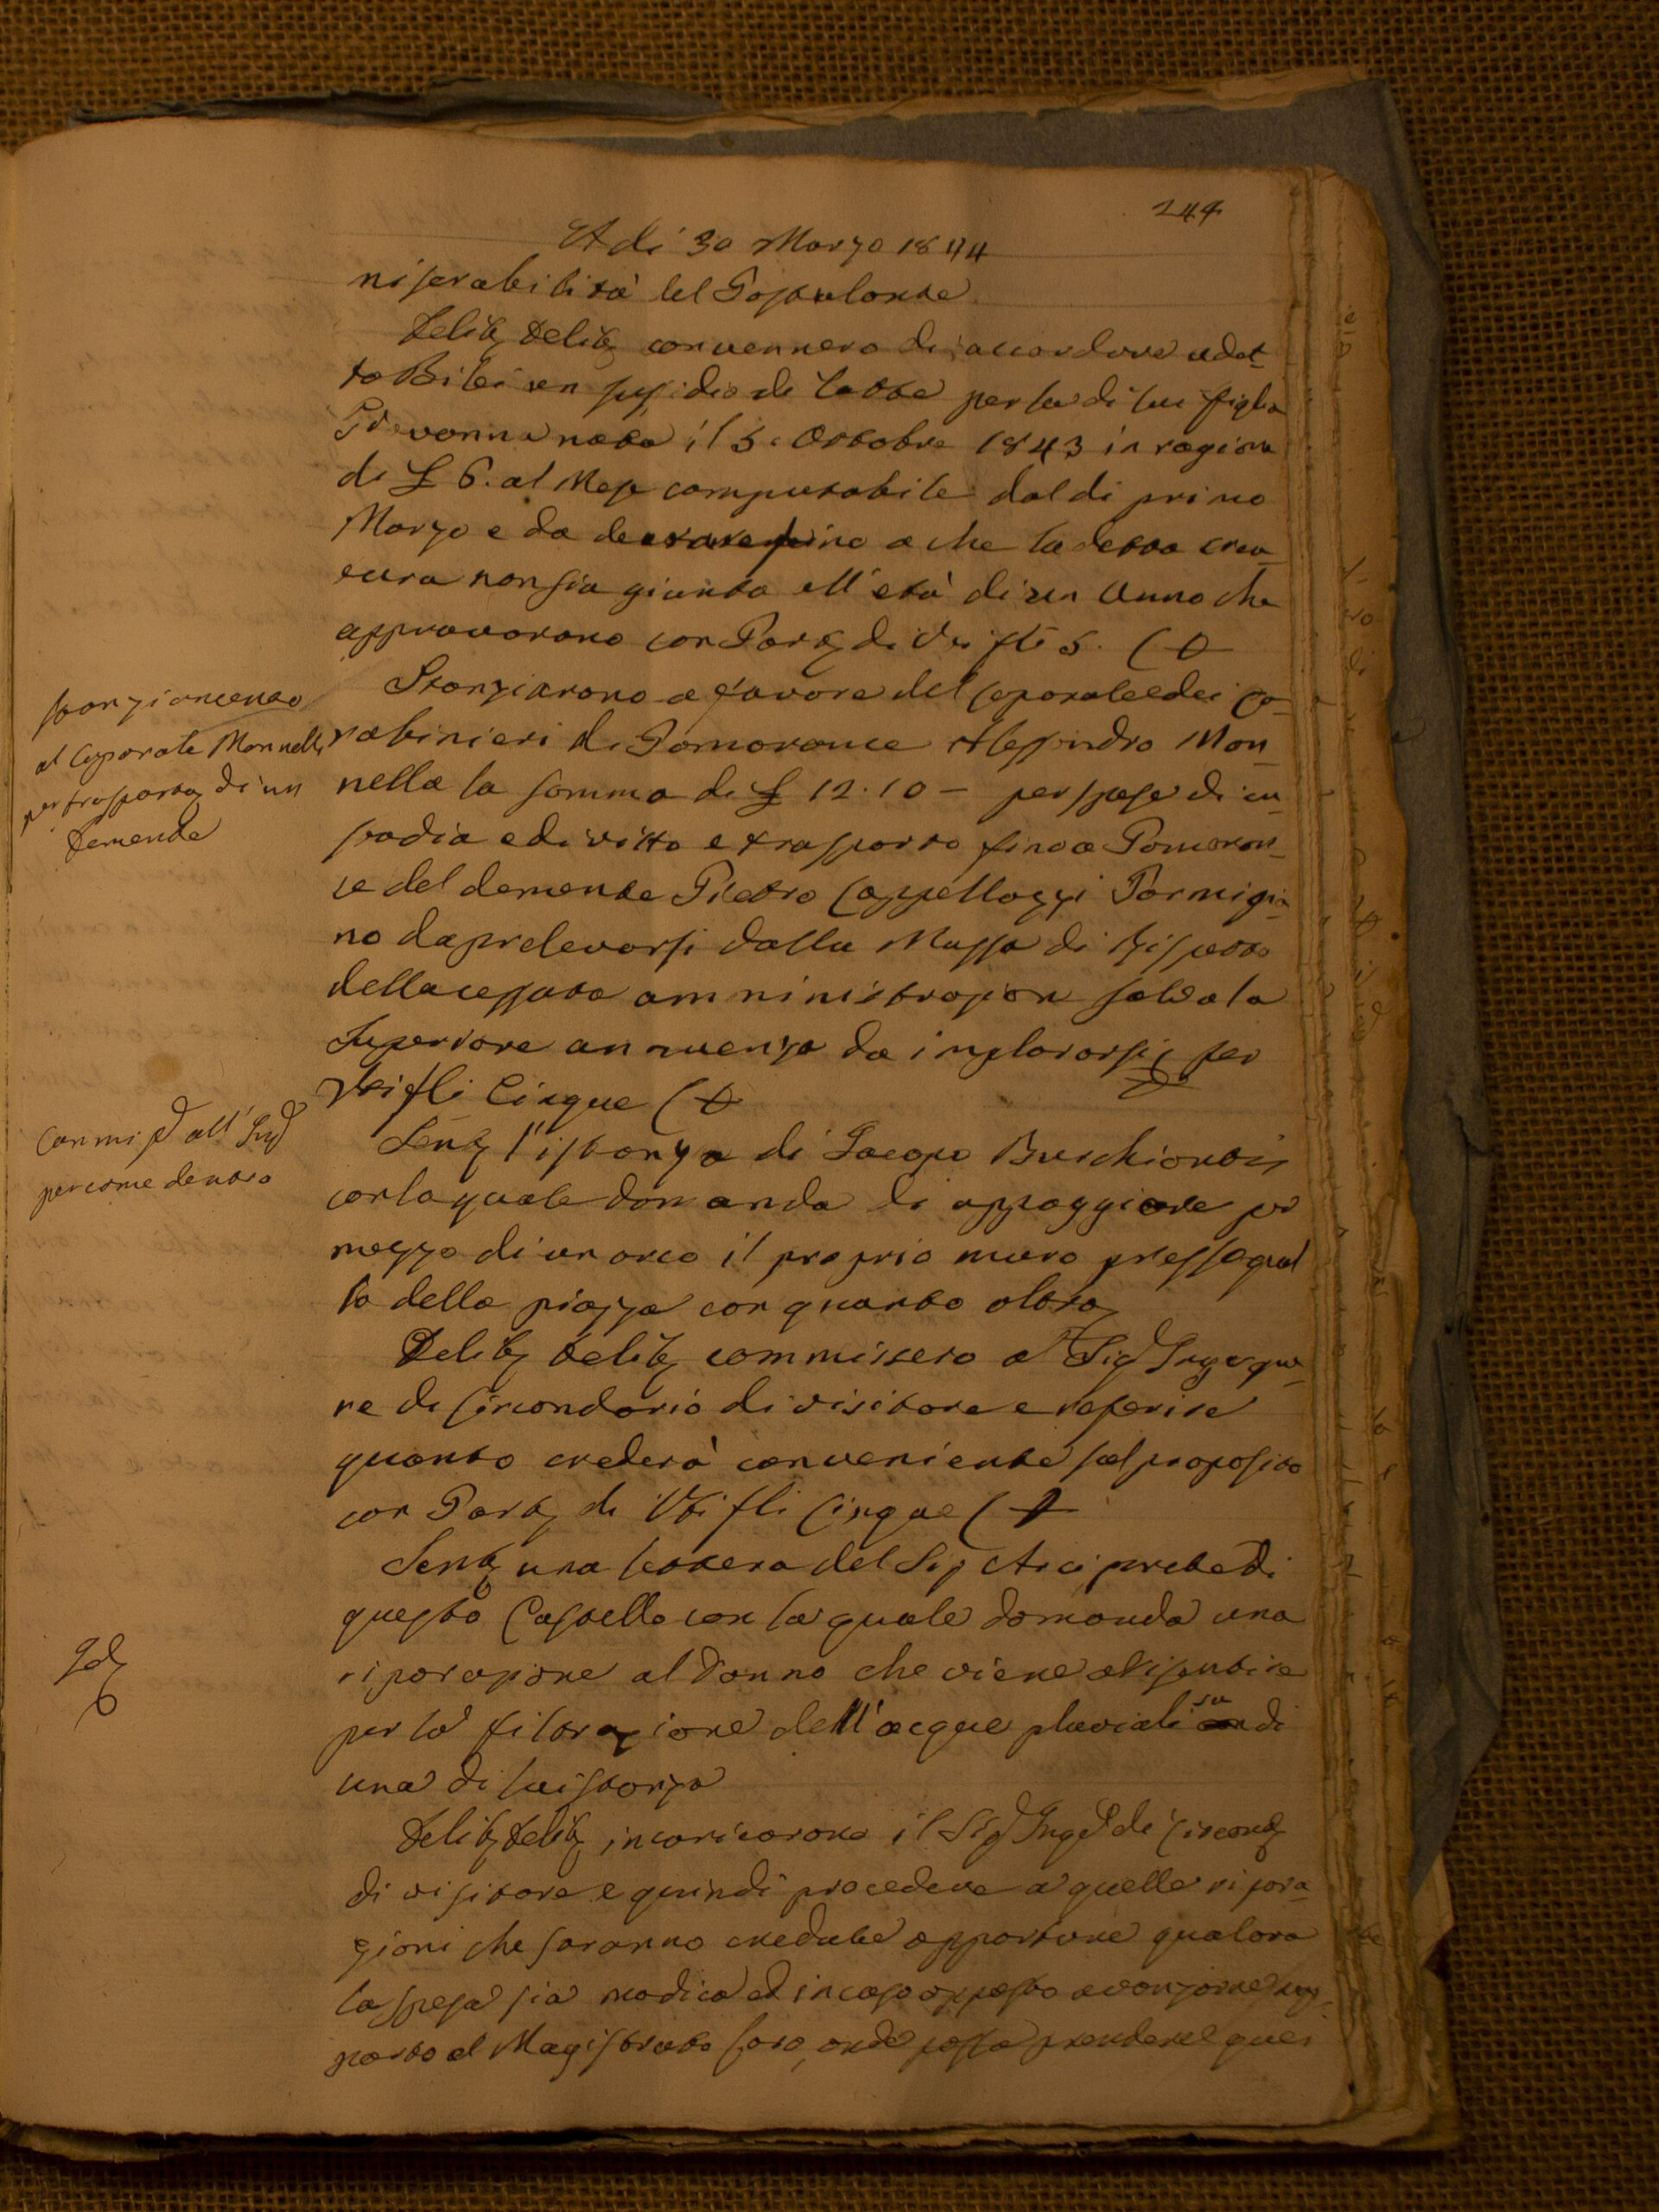 244
A di 30 Marzo 1844
miserabilità del Postulante
Delib Delib convennero di accordare a det-
to Bibi un sussidio di latte per la di lui figlia
Giovanna nata il 5. Ottobre 1843 in ragione
di £ 6. al Mese computabile dal di primo
Marzo e da durare fino a che la detta crea-
tura non sia giunta all'età di un Anno che
approvarono con Part di Vti fli 5. (+
Stanziamento
al Caporale Mannelli
per trasporto di un
Demente
Stanziarono a favore del Caporale dei Ca-
rabinieri di Pomarance Alessandro Man-
nella la somma di £ 12.10 - per spese di cu-
stodia e di vitto e trasporto fino a Pomaran-
ce del demente Pietro Cappellozzi Parmigia-
no da prelevarsi dalla Massa di Rispetto
della cessata amministrazion salva la
Superiore annuenza da implorarsi per
Vti fli Cinque (+
Commis all' Ing
per come dentro
Sent l'istanza di Jacopo Buschiontis
con la quale domanda di appoggiare per
mezzo di un arco il proprio muro presso quel
lo della piazza con quanto altro
Delib Delib commissero al Sig Ingegne-
re di Circondario di visitare e referire
quanto crederà conveniente sul proposito
con Part di Vti fli Cinque (+
Sent una lettera del Sig Arciprete di
questo Castello con la quale domanda una
riparazione al danno che viene a risentire
per la filtrazione dell'acque pluviali su di
una di lui stanza
Id
Delib Delib incaricarono il Sig Ing di Circond
di visitare e quindi procedere a quelle ripara-
zioni che saranno credute opportune qualora
la spesa sia modica ed in caso opposto avanzarne rap-
porto al Magistrato loro, onde possa prendere quei